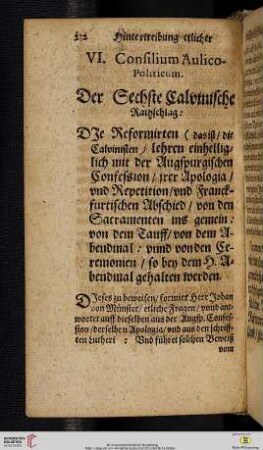 Hintertreibung etlicher
VI. Consilium Aulico-
Politicum.
Der Sechste Calvinische
Rathschlag:
DJe Reformirten (das ist / die
Calvinisten / lehren einhellig-
lich mit der Augspurgischen
Confession / jrer Apologia /
vnd Repetition / vnd Franck-
furtischen Abschied / von den
Sacramenten ins gemein:
von dem Tauff / von dem A-
bendmal: vnnd von den Ce-
remonien / so bey dem H. A-
bendmal gehalten werden.
DJeses zu beweisen / formirt Herr Johan
von Münster / etliche Fragen / vnnd ant-
wortet auff dieselben aus der Augsp. Confes-
sion / derselben Apologia / vnd aus den schriff-
ten Lutheri: Vnd führet solchen Beweiß
vom